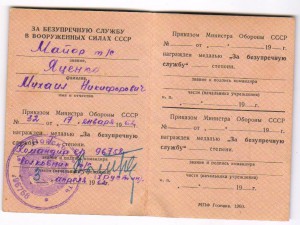 ЗА БЕЗУПРЕЧНУЮ СЛУЖБУ
В ВООРУЖЕННЫХ СИЛАХ СССР
Майор
звание
Яценко
фамилия
Михаил Никифорович
имя и отчество
Приказом Министра Обороны СССР
№ 32 от 19 января 1964
награжден медалью „За безупречную
службу"
степени.
Командир
Полковник
5 апреля 1964 г.
Приказом Министра Обороны СССР
№ от „ " 19 г.
награжден медалью „За безупречную
службу" степени.
звание и подпись командира
части (начальника учреждения)
„ " 19 г.
Приказом Министра Обороны СССР
№ от „ " 19 г.
награжден медалью „За безупречную
службу" степени.
звание и подпись командира
части (начальника учреждения)
„ " 19 г.